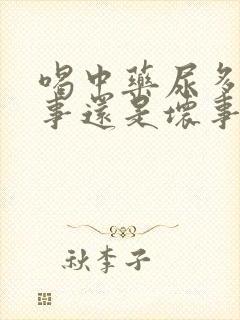 喝中藥尿多
事還是壞事
秋李子